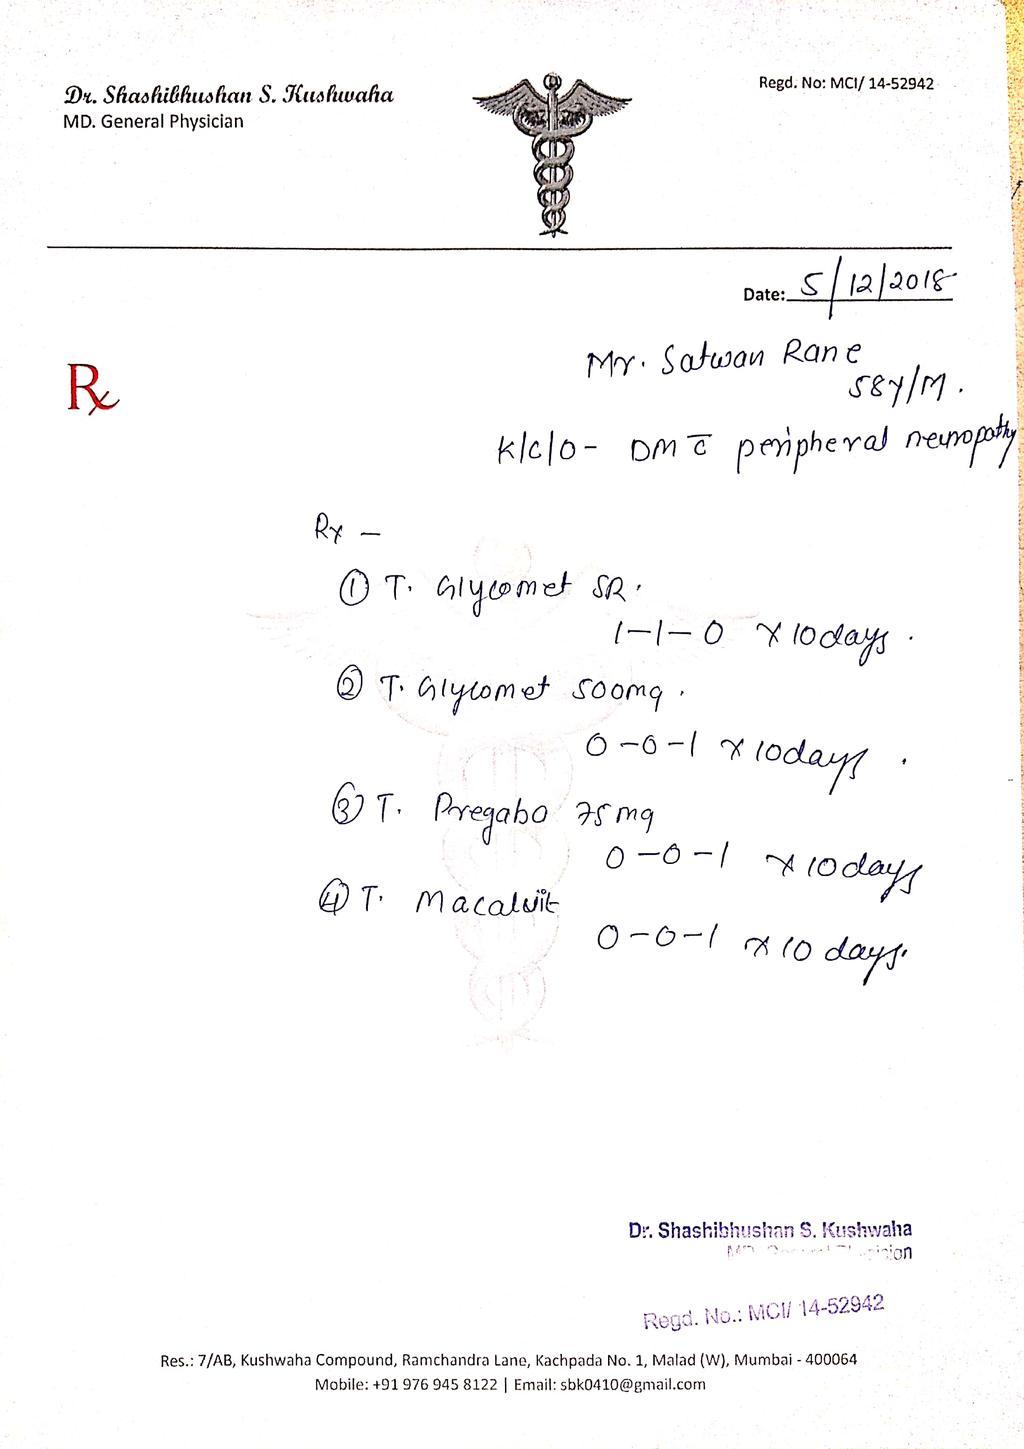 Dr. Shashibhushan S. Kushwaha
MD. General Physician
Regd. No: MCI/ 14-52942
Date: 5/12/2018
Rx
Mr. Satwan Rane
58Y/M.
K/C/O - DM c̄ peripheral neuropathy
Rx -
① T. Glycomet SR.
1-1-0 x 10 days.
② T. Glycomet 500mg.
0-0-1 x 10 days.
③ T. Pregabo 75 mg
0-0-1 x 10 days
④ T. Macalvit
0-0-1 x 10 days.
Dr. Shashibhushan S. Kushwaha
Regd. No.: MCI/ 14-52942
Res.: 7/AB, Kushwaha Compound, Ramchandra Lane, Kachpada No. 1, Malad (W), Mumbai - 400064
Mobile: +91 976 945 8122 | Email: sbk0410@gmail.com